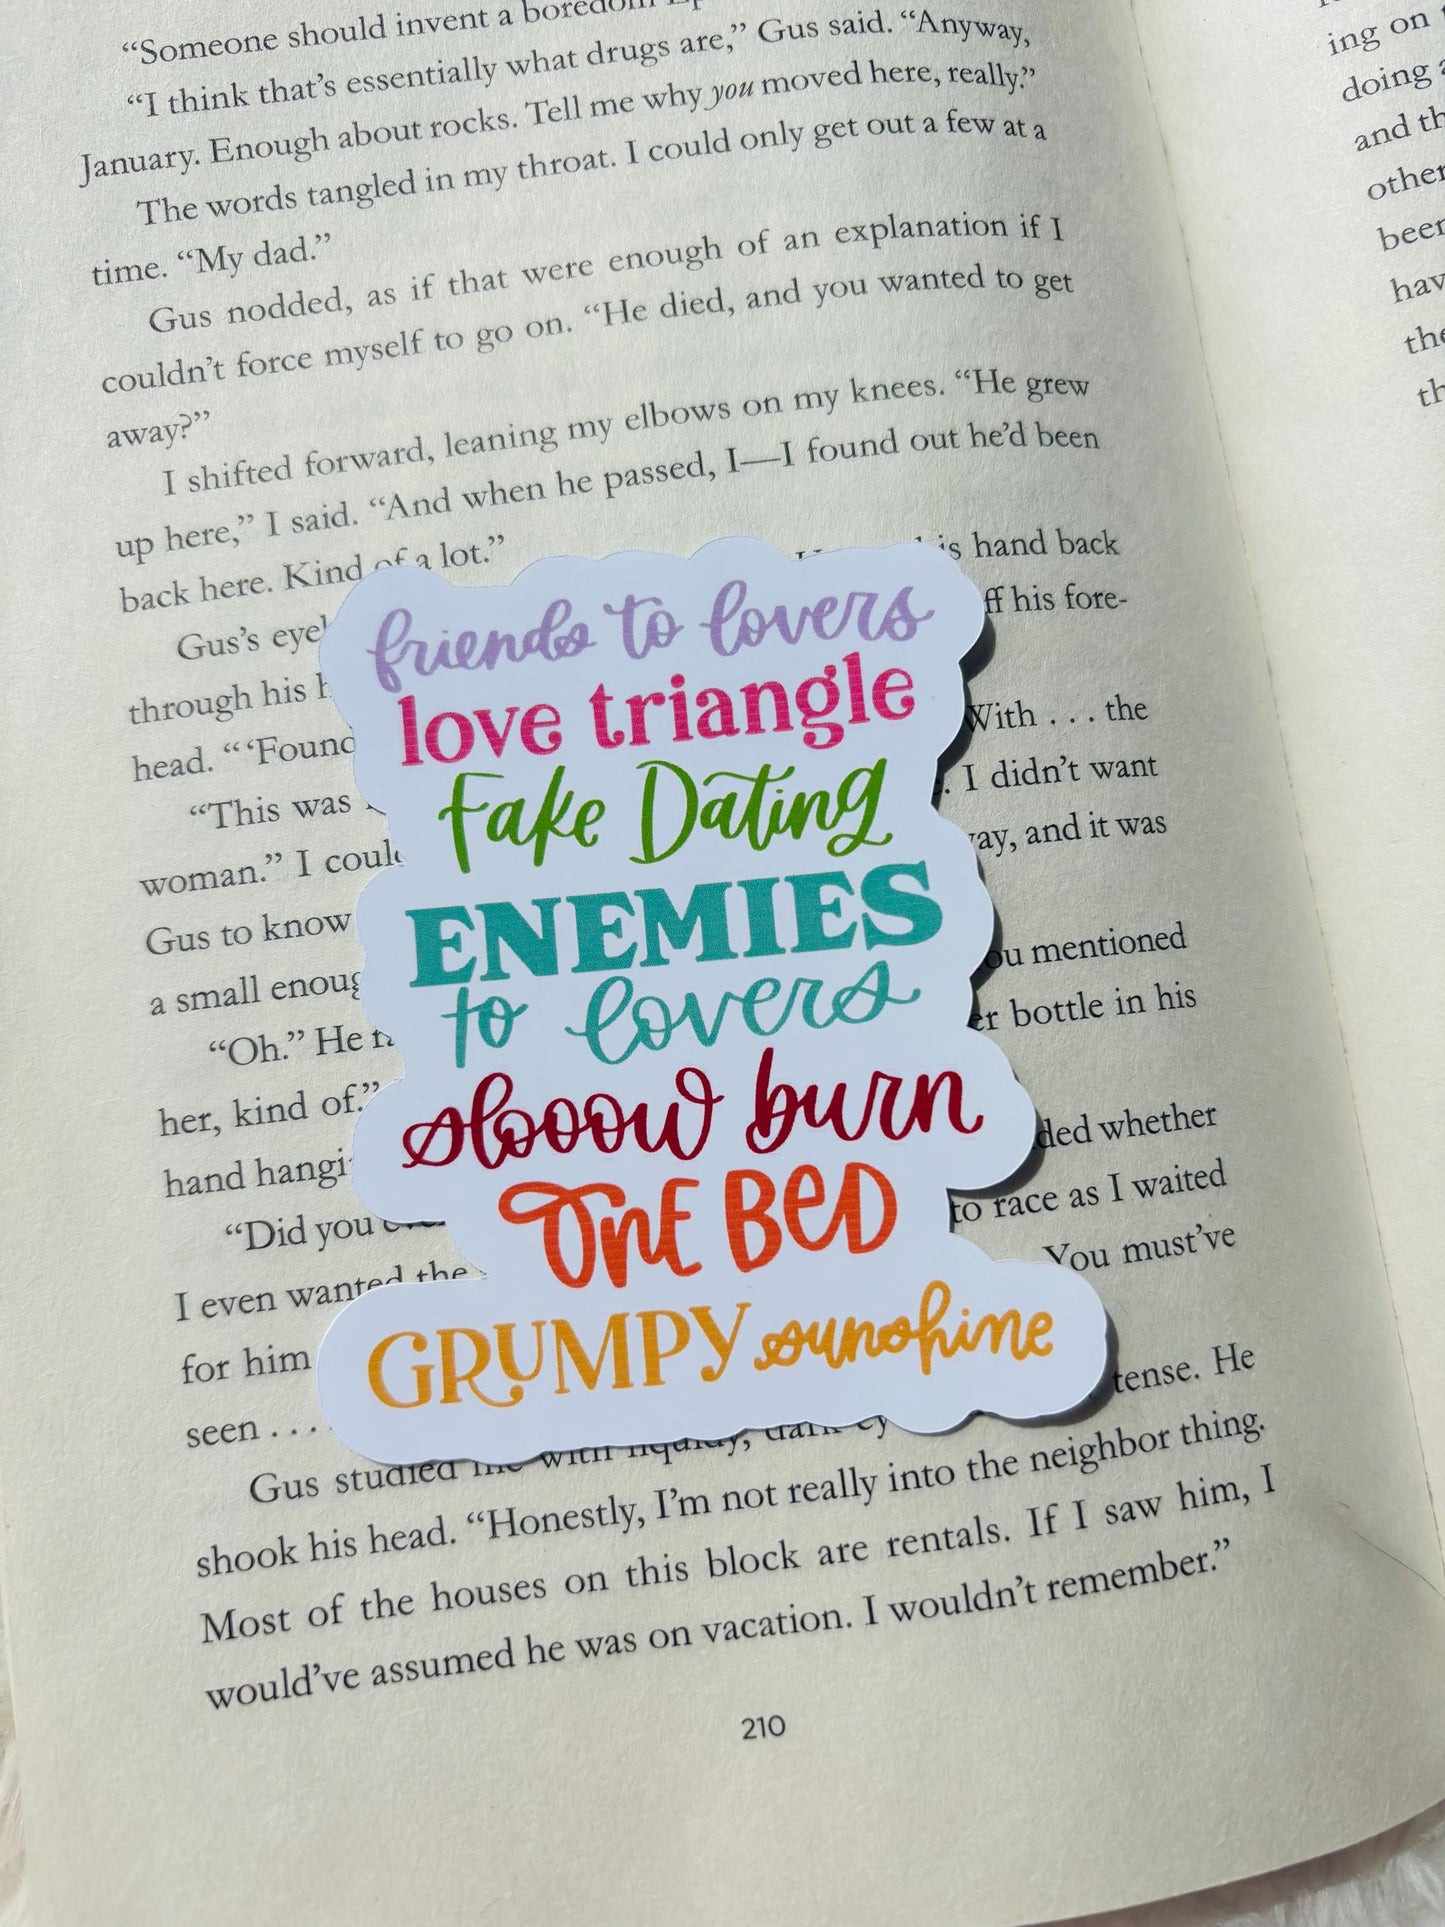 "Someone should invent a boredom
"I think that's essentially what drugs are," Gus said. "Anyway,
January. Enough about rocks. Tell me why you moved here, really."
The words tangled in my throat. I could only get out a few at a
time. "My dad."
Gus nodded, as if that were enough of an explanation if I
couldn't force myself to go on. "He died, and you wanted to get
away?"
I shifted forward, leaning my elbows on my knees. "He grew
up here," I said. "And when he passed, I—I found out he'd been
back here. Kind of a lot."
Gus's eye his hand back
through his ff his fore-
head. "'Found With . . . the
"This was I didn't want
woman." I coul ay, and it was
Gus to know
a small enoug ou mentioned
"Oh." He er bottle in his
her, kind of."
hand hangi ded whether
"Did you to race as I waited
I even wanted the You must've
for him
seen . . . tense. He
Gus studied me with
shook his head. "Honestly, I'm not really into the neighbor thing.
Most of the houses on this block are rentals. If I saw him, I
would've assumed he was on vacation. I wouldn't remember."
210
friends to lovers
love triangle
Fake Dating
ENEMIES
to lovers
slooow burn
One Bed
GRUMPY sunshine
ing on
doing
and th
other
been
hav
the
th